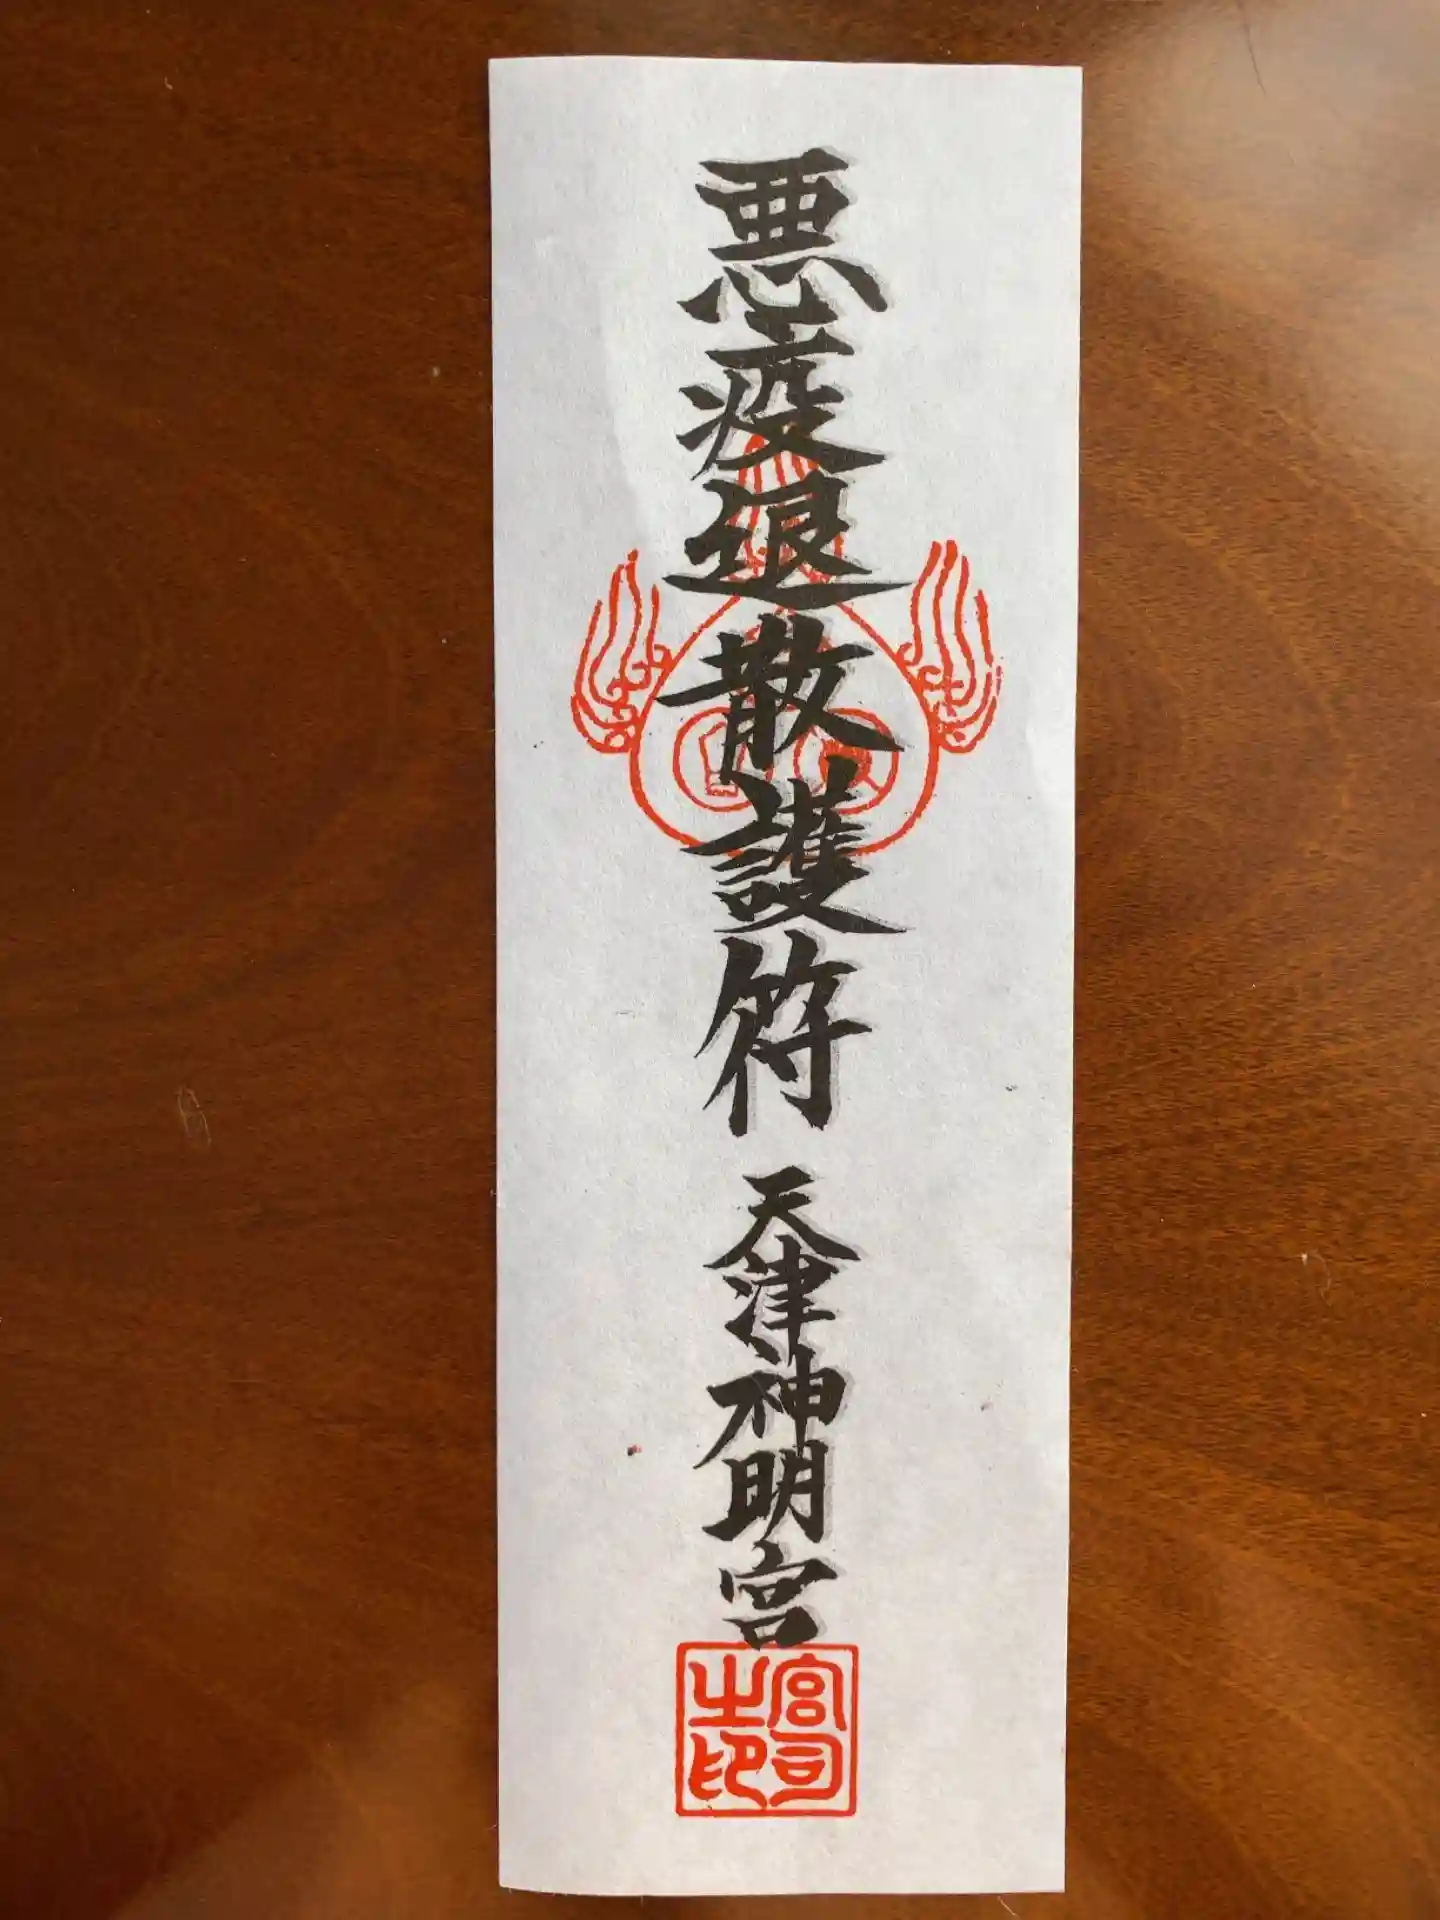 悪疫退散護符
天津神明宮
宮司之印